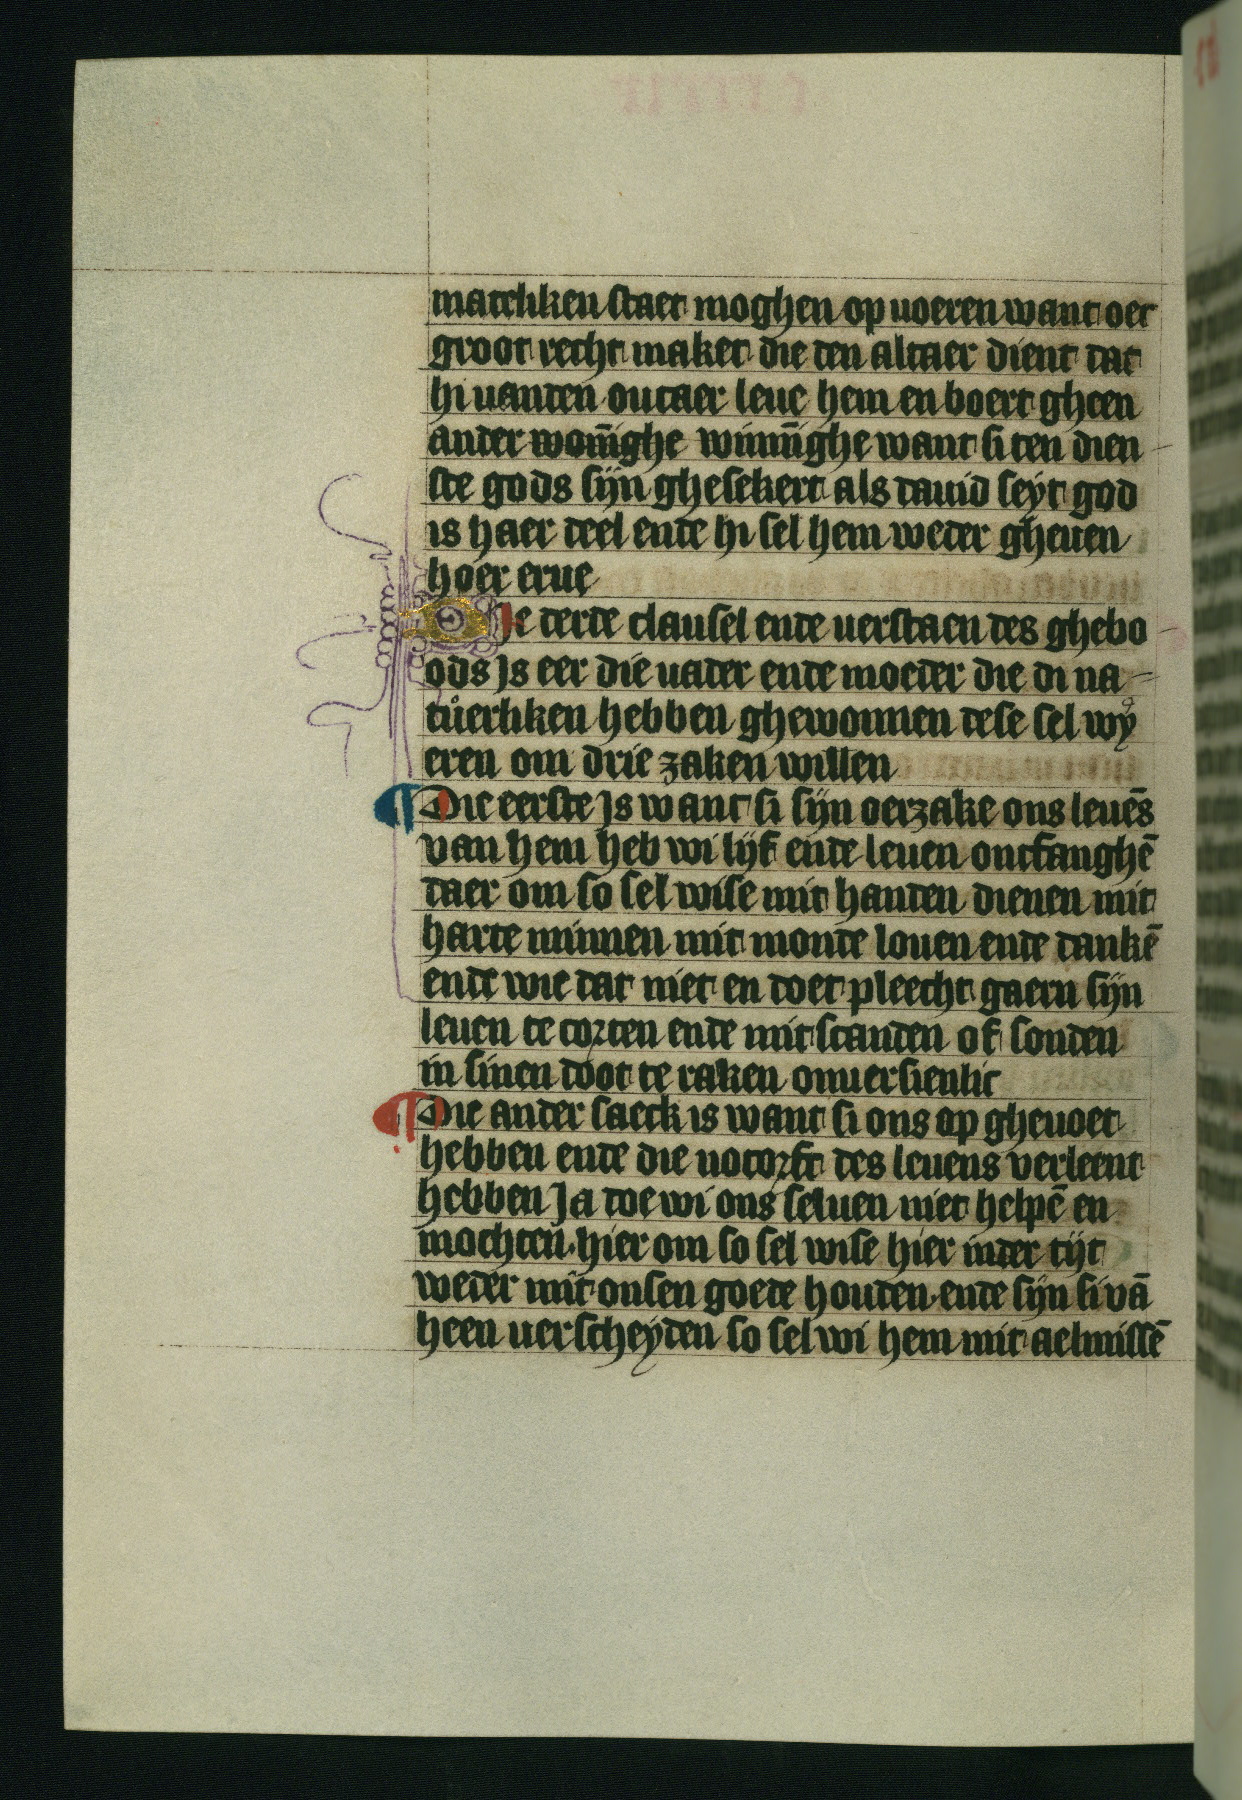 mateliken staet moghen op uoeren want oec
groot recht maket die den altaer dient dat
hi uanden outaer leue hem en boert gheen
ander wonīghe winnīghe want si ten dien
ste gods sijn ghesekert als dauid seyt god
is haer deel ende hi sel hem weder gheuen
hoer erue
Die derde clausel ende uerstaen des ghebo
ods Js eer die uader ende moeder die di na
tůerliken hebben ghewonnen dese sel wy
eren om drie zaken willen
¶ Die eerste Js want si sijn oerzake ons leuēs
van hem heb wi lijf ende leuen ontfanghē
daer om so sel wise mit handen dienen mit
harte minnen mit monde louen ende dankē
ende wie dat niet en doet pleecht gaern sijn
leuen te corten ende mit scanden of sonden
in sinen doot te raken onuersienlic
¶ Die ander saeck is want si ons op gheuoet
hebben ende die notorft des leuens verleent
hebben Ja doe wi ons seluen niet helpē en
mochten. hier om so sel wise hier inder tijt
weder mit onsen goede houden. ende sijn si vā
heen uerscheyden so sel wi hem mit aelmissē